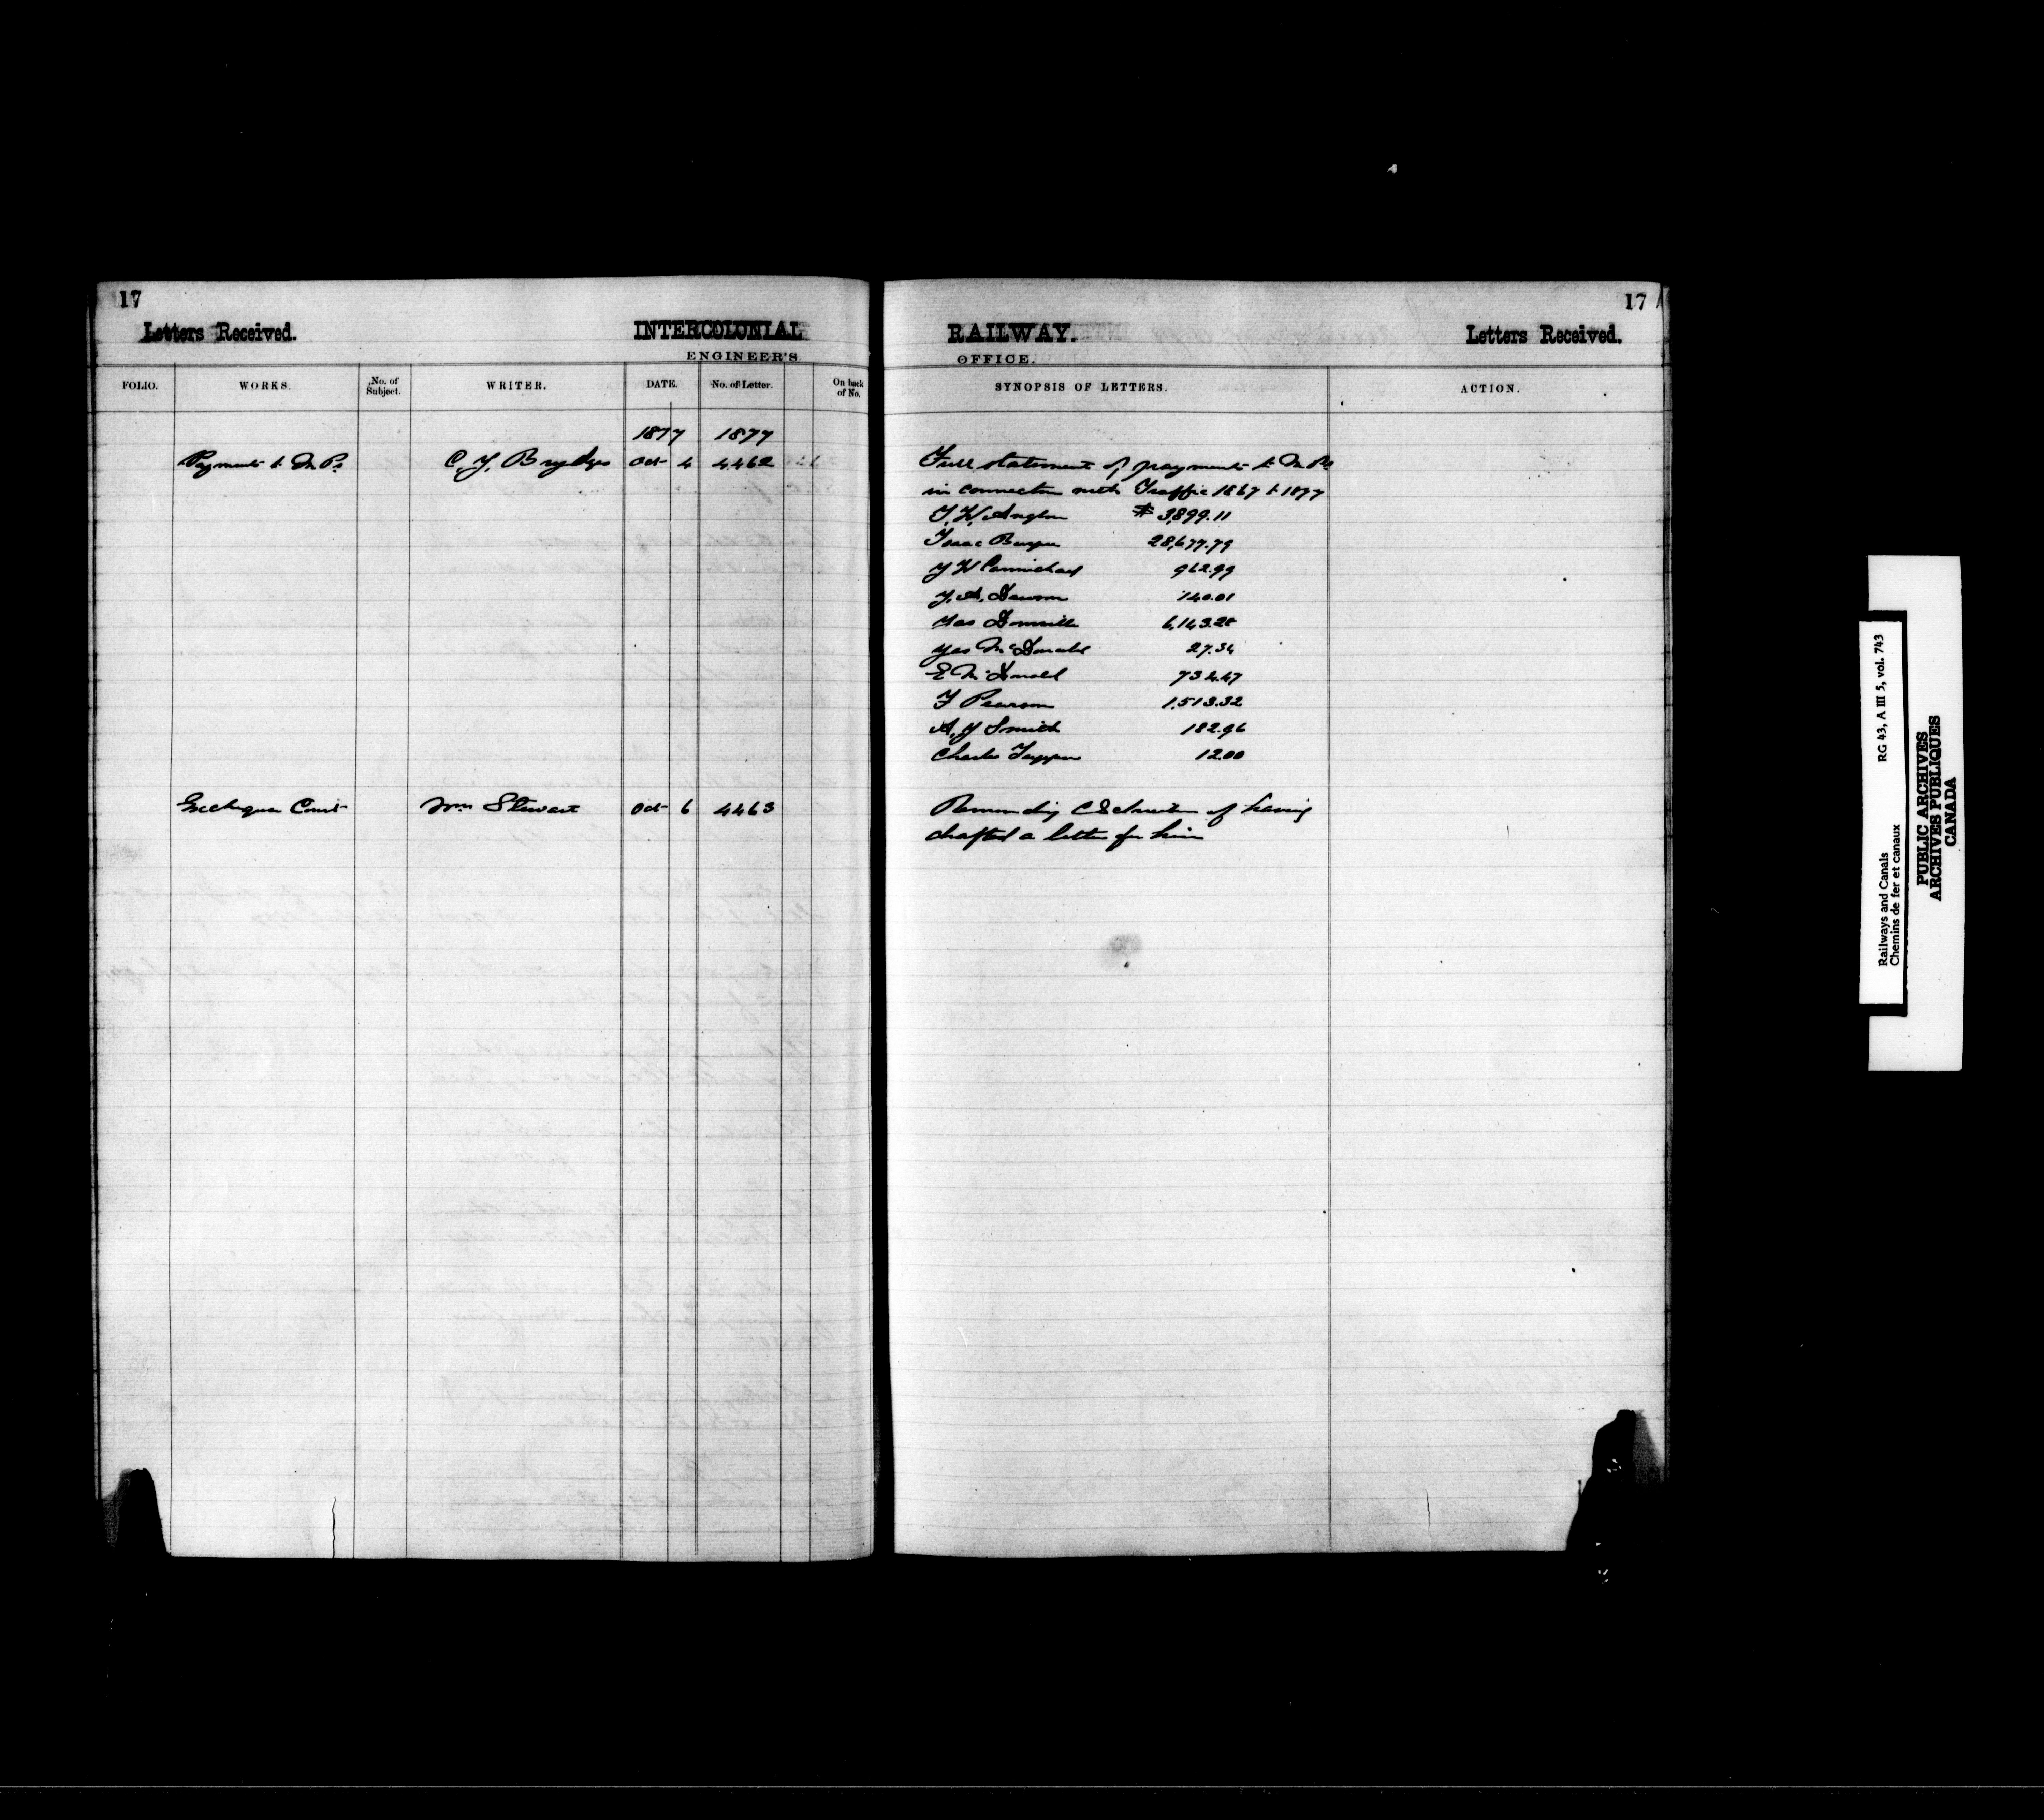 17
Letters Received.
INTERCOLONIAL
ENGINEER'S
FOLIO. WORKS. No. of Subject. WRITER. DATE. No. of Letter. On back of No.
1877 1877
Payments to M Ps C. J. Brydges Oct 4 4462
Exchequer Court Wm Stewart Oct 6 4463
17
RAILWAY.
OFFICE.
Letters Received.
SYNOPSIS OF LETTERS. ACTION.
Full statement of payments to M Ps
in connection with Traffic 1867 to 1877
T. W. Anglin $ 3,899.11
Isaac Burpee 28,677.79
J W Carmichael 962.99
J. A. Dawson 140.01
Jas Domville 6,143.28
Jas McDonald 27.34
E McDonald 734.47
F Pearson 1,513.32
A. J Smith 182.96
Charles Tupper 12.00
Reminding of having
drafted a letter for him
Railways and Canals RG 43, A III 5, vol. 743
Chemins de fer et canaux
PUBLIC ARCHIVES
ARCHIVES PUBLIQUES
CANADA